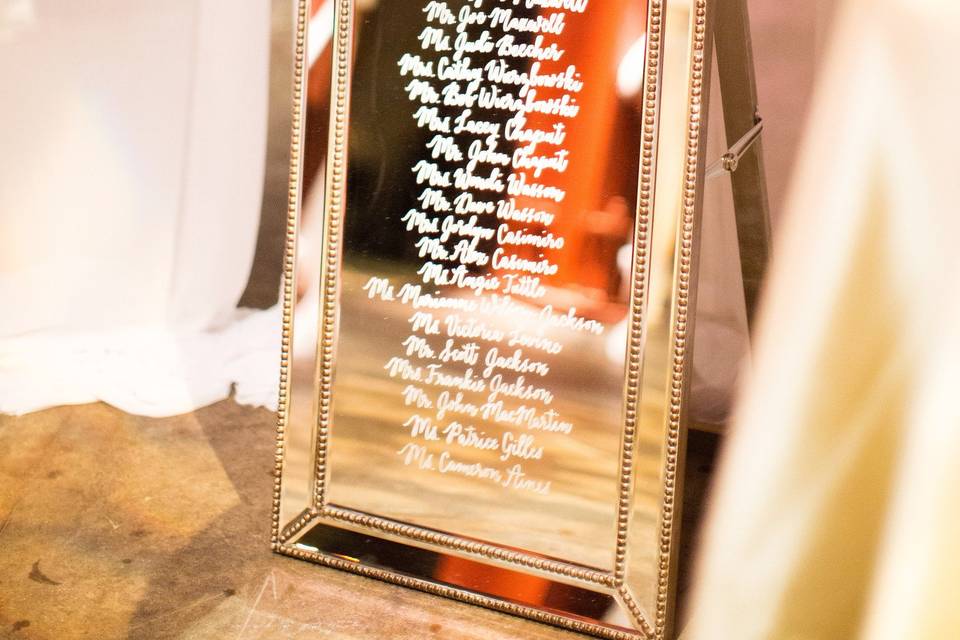 Maxwell
Mr. Joe Maxwell
Ms. Jude Beecher
Mrs. Cathy Wierzbowski
Mr. Bob Wierzbowski
Mrs. Lacey Chaput
Mr. John Chaput
Mrs. Wendi Wasson
Mr. Dave Wasson
Mrs. Jordyn Casimiro
Mr. Alex Casimiro
Ms. Angie Tuttle
Ms. Marianne Wilson Jackson
Ms. Victoria Levine
Mr. Scott Jackson
Mrs. Frankie Jackson
Mr. John MacMartin
Ms. Patrice Gilles
Ms. Cameron Aines